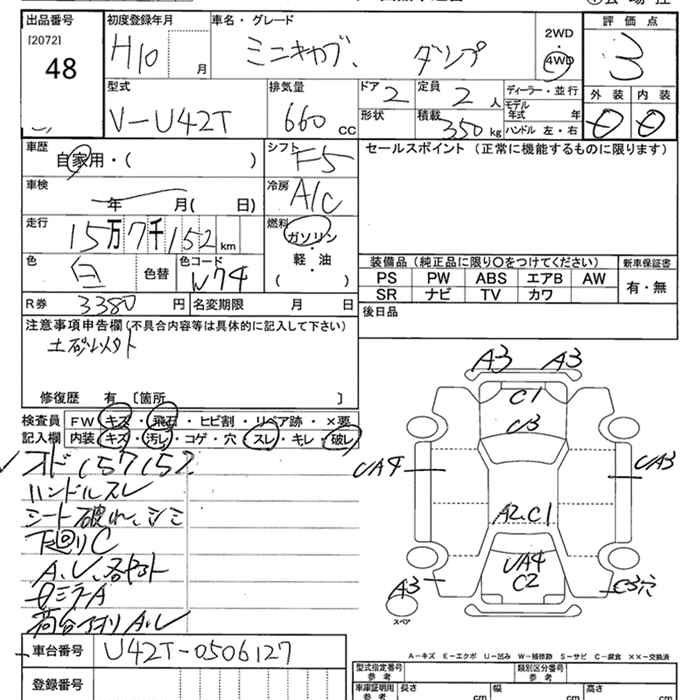 出品番号
[2072]
48
初度登録年月
H10 月
車名・グレード
ミニキャブ、 ダンプ
2WD
・
4WD
評価点
3
外装 内装
型式
V-U42T
排気量
660 CC
ドア
2
定員
2 人
形状
積載
350 kg
ディーラー・並行
モデル年式 年
ハンドル 左・右
車歴
自家用・( )
シフト
F5
セールスポイント (正常に機能するものに限ります)
車検
年 月( 日)
冷房
A/C
走行
15万7千152 km
燃料
ガソリン
・
軽・油
( )
色
白
色替
色コード
W74
装備品 (純正品に限り○をつけてください)
新車保証書
PS PW ABS エアB AW
SR ナビ TV カワ
有・無
R券 3380 円
名変期限 月 日
後日品
注意事項申告欄 (不具合内容等は具体的に記入して下さい)
土砂以外
修復歴 有 〔箇所 〕
検査員
記入欄
FW キズ・飛石・ヒビ割・リペア跡・×要
内装 キズ・汚し・コゲ・穴・スレ・キレ・破レ
オド157152
ハンドルスレ
シート破れ、シミ
下廻りC
A.U.各ヤト
ロミラーA
荷台アオリA.U
A3 A3
C1
U3
UA4
UA3
A2.C1
UA4
C2
A3
C3穴
スペア
A-キズ E-エクボ U-凹み W-補修跡 S-サビ C-腐食 ××-交換済
車台番号
U42T-0506127
登録番号
型式指定番号
参考
類別区分番号
参考
車庫証明用
参考
長さ cm
幅 cm
高さ cm